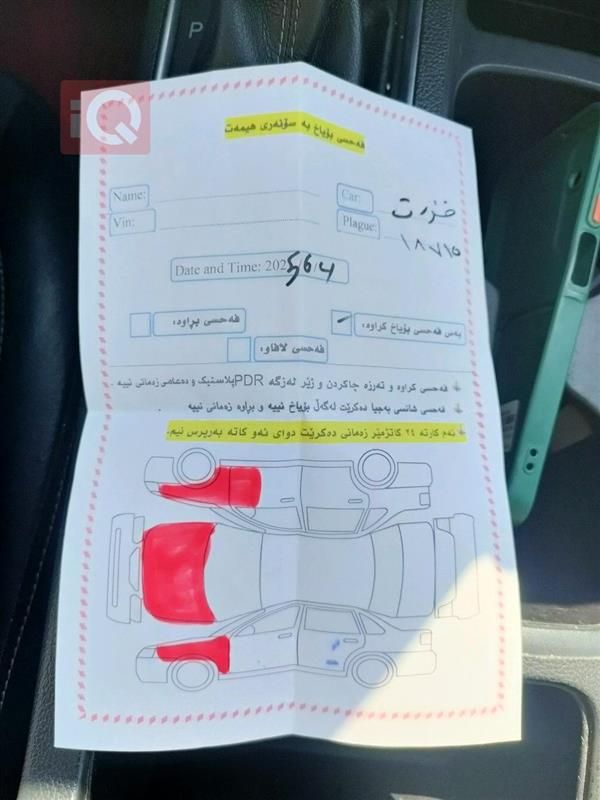 P
iQ
فەحسی بۆیاخ بە سۆنەری هیمەت
Name:
Car:
Vin:
Plague:
١٨٧١٥
Date and Time: 202
بەس فەحسی بۆیاخ کراوە:
فەحسی بڕاوە:
فەحسی لافاو:
فەحسی کراوە و تەرزە چاکردن و ژێر لەزگە PDR پلاستیک و دەعامی زەمانی نییە .
فەحسی شانسی بەجیا دەکرێت لەگەڵ بۆیاخ نییە و بڕاوە زەمانی نییە .
ئەم کارتە ٢٤ کاتژمێر زەمانی دەکرێت دوای ئەو کاتە بەرپرس نیم.